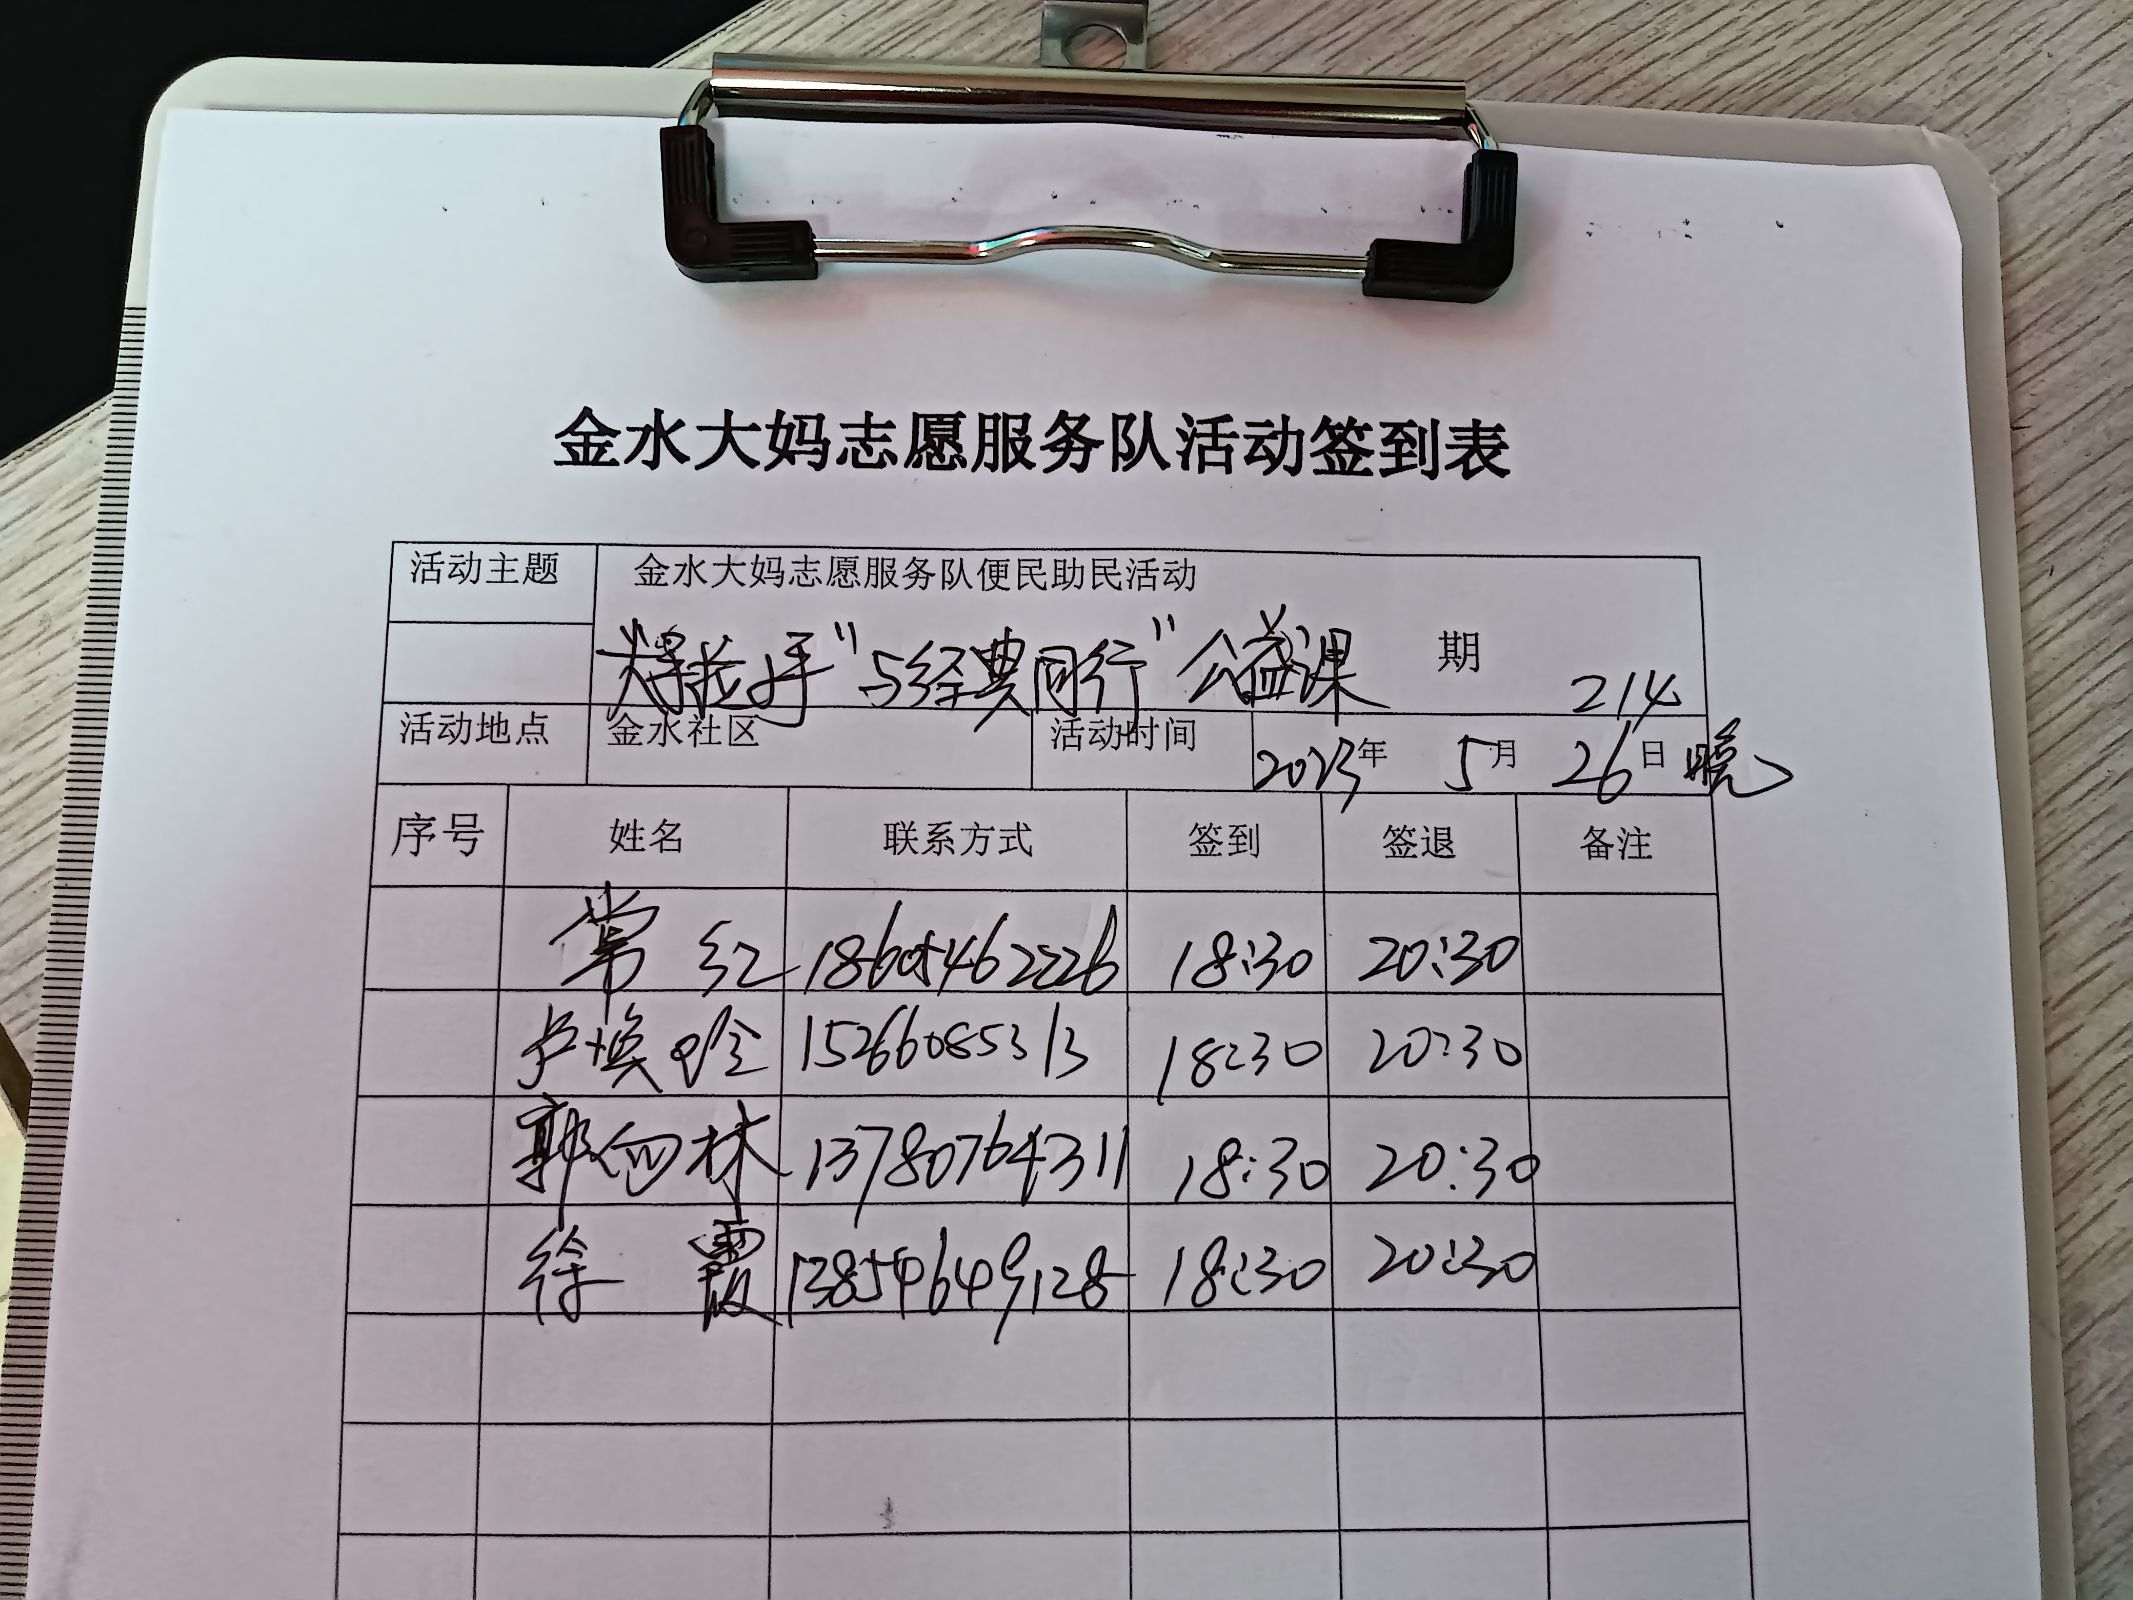 金水大妈志愿服务队活动签到表
活动主题 金水大妈志愿服务队便民助民活动
大手拉小手“与经典同行”公益课 期 214
活动地点 金水社区 活动时间 2023年 5月 26日晚
序号 姓名 联系方式 签到 签退 备注
常红 18605462226 18:30 20:30
卢焕玲 15266085313 18:30 20:30
郭向林 13780764311 18:30 20:30
徐霞 13854649128 18:30 20:30